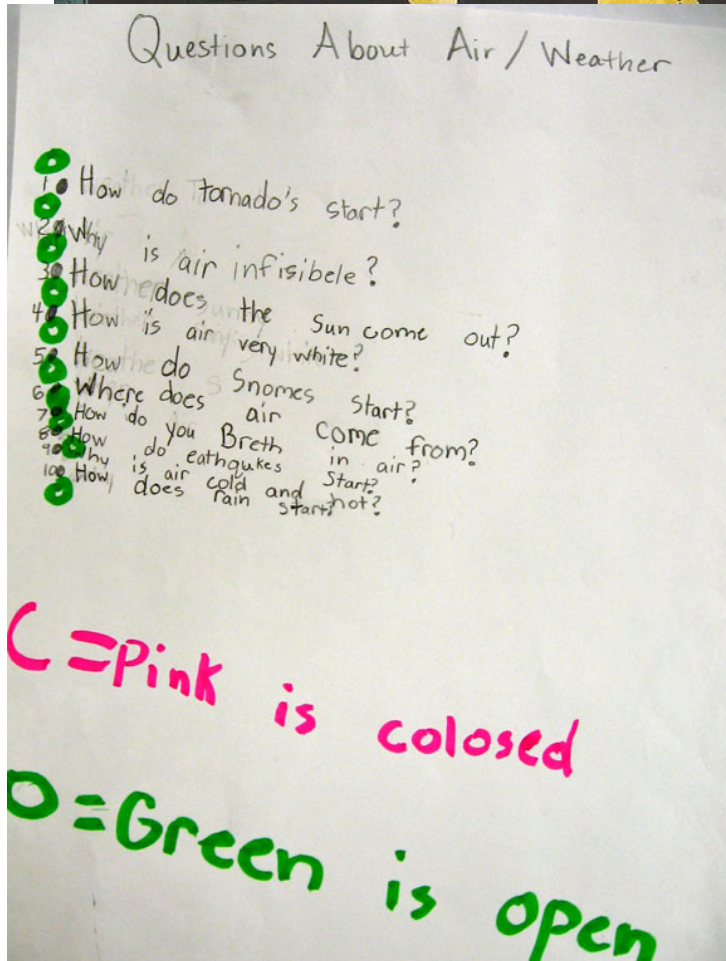 Questions About Air/Weather
1. How do tornado's start?
2. Why is air infisibele?
3. How does the Sun come out?
4. How is air very white?
5. How do Snomes start?
6. Where does air come from?
7. How do you Breth in air?
8. How do eathqukes Start?
9. Why is air cold and hot?
10. How does rain start?
C=Pink is colosed
O=Green is open